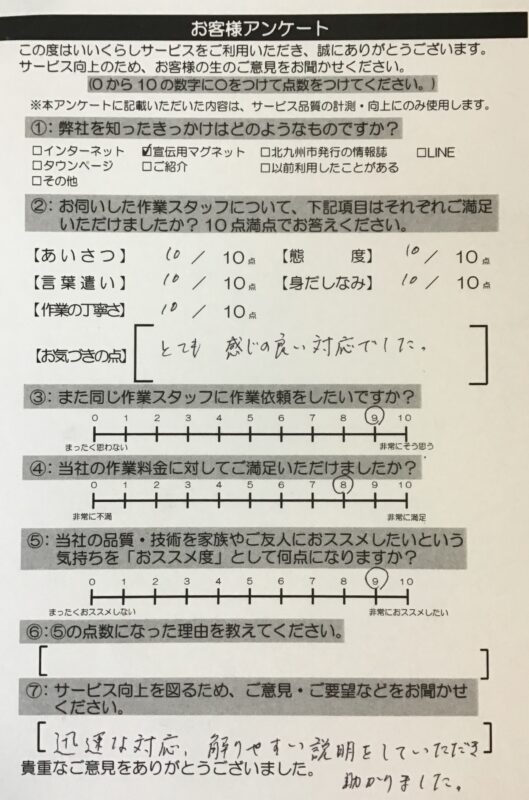 お客様アンケート
この度はいいくらしサービスをご利用いただき、誠にありがとうございます。
サービス向上のため、お客様の生のご意見をお聞かせください。
(0から10の数字に○をつけて点数をつけてください。)
※本アンケートに記載いただいた内容は、サービス品質の計測・向上にのみ使用します。
①：弊社を知ったきっかけはどのようなものですか？
□インターネット ☑宣伝用マグネット □北九州市発行の情報誌 □LINE
□タウンページ □ご紹介 □以前利用したことがある
□その他
②：お伺いした作業スタッフについて、下記項目はそれぞれご満足
いただけましたか？10点満点でお答えください。
【あいさつ】 10 / 10点 【態度】 10 / 10点
【言葉遣い】 10 / 10点 【身だしなみ】 10 / 10点
【作業の丁寧さ】 10 / 10点
【お気づきの点】 とても 感じの良い対応でした。
③：また同じ作業スタッフに作業依頼をしたいですか？
0 1 2 3 4 5 6 7 8 9 10
まったく思わない 非常にそう思う
④：当社の作業料金に対してご満足いただけましたか？
0 1 2 3 4 5 6 7 8 9 10
非常に不満 非常に満足
⑤：当社の品質・技術を家族やご友人におススメしたいという
気持ちを「おススメ度」として何点になりますか？
0 1 2 3 4 5 6 7 8 9 10
まったくおススメしない 非常におススメしたい
⑥：⑤の点数になった理由を教えてください。
⑦：サービス向上を図るため、ご意見・ご要望などをお聞かせ
ください。
迅速な対応、解りやすい説明をしていただき
助かりました。
貴重なご意見をありがとうございました。